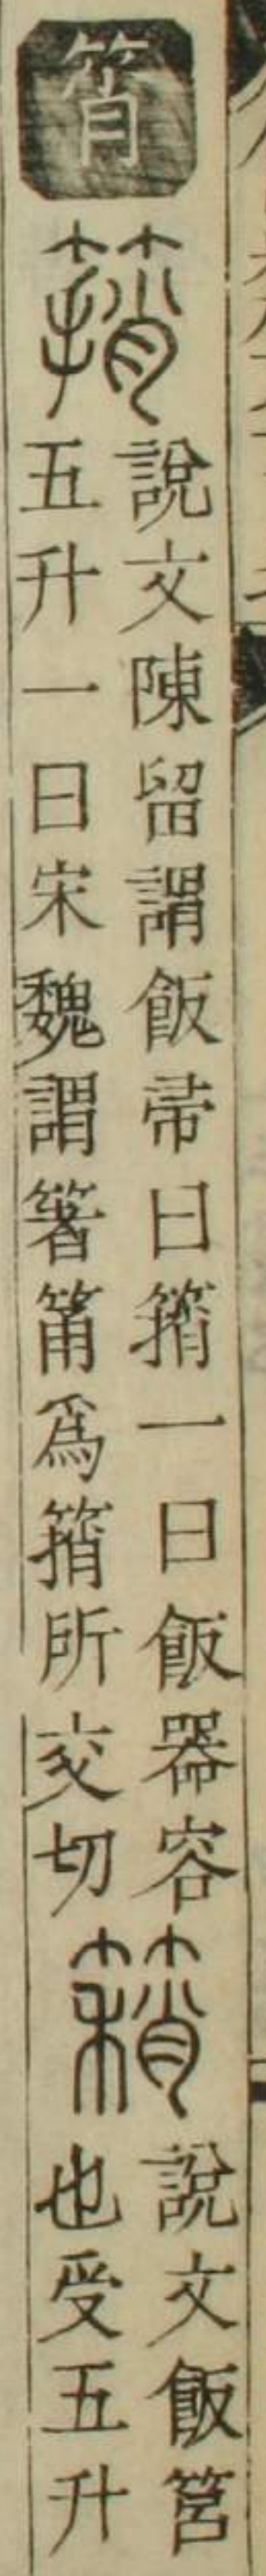 筲
䈰
說文陳留謂飯帚曰䈰一曰飯器容
五升一曰宋魏謂箸筩爲䈰所交切
𥳓
說文飯筥
也受五升